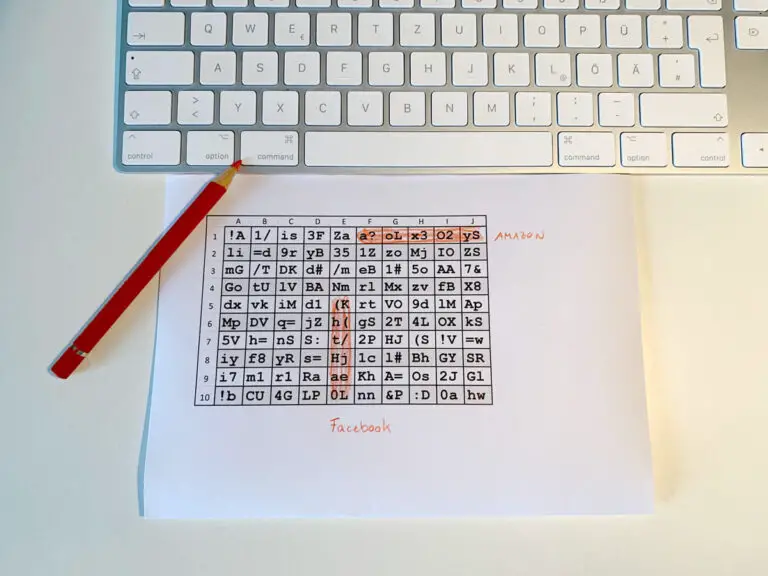 Q W E € R T Z U I O P Ü * +
A S D F G H J K L @ Ö Ä ' #
> < Y X C V B N M ; , : . _ -
control option command command option control
A B C D E F G H I J
1 !A 1/ is 3F Za a? oL x3 O2 yS AMAZON
2 li =d 9r yB 35 1Z zo Mj IO ZS
3 mG /T DK d# /m eB 1# 5o AA 7&
4 Go tU lV BA Nm rl Mx zv fB X8
5 dx vk iM d1 (K rt VO 9d lM Ap
6 Mp DV q= jZ h( gS 2T 4L OX kS
7 5V h= nS S: t/ 2P HJ (S !V =w
8 iy f8 yR s= Hj 1c l# Bh GY SR
9 i7 m1 r1 Ra ae Kh A= Os 2J Gl
10 !b CU 4G LP 0L nn &P :D 0a hw
Facebook